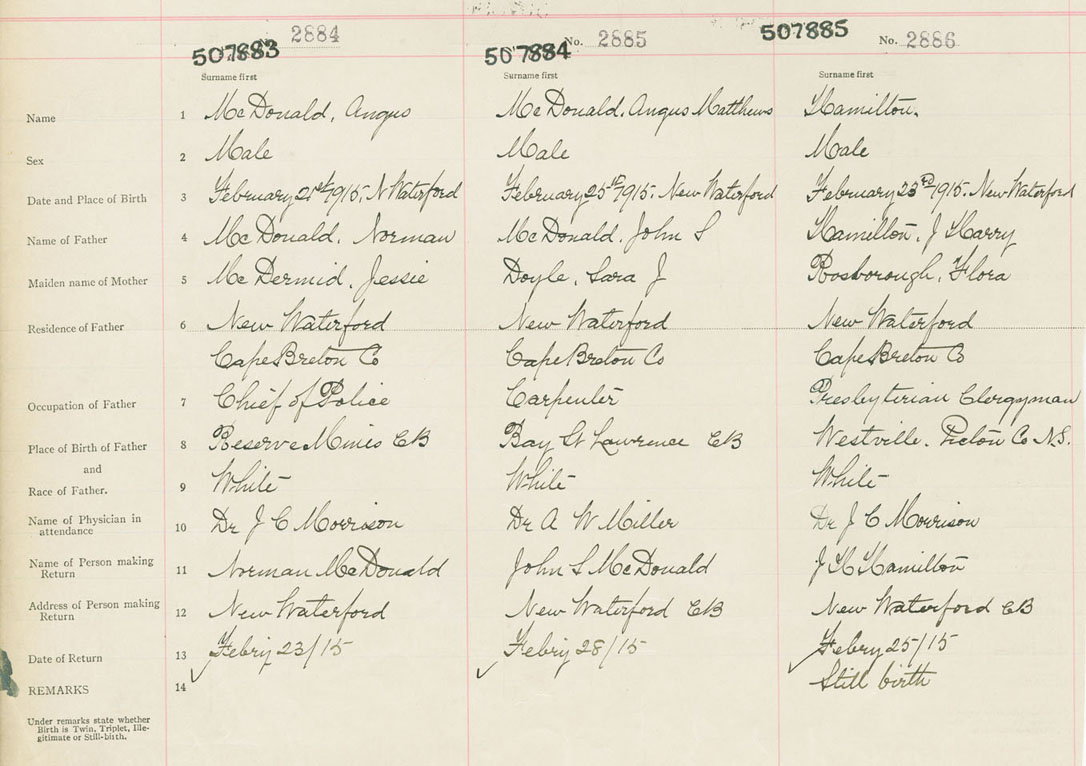 507883 2884 507884 No. 2885 507885 No. 2886
Surname first Surname first Surname first
Name 1 McDonald, Angus McDonald. Angus Matthews Hamilton.
Sex 2 Male Male Male
Date and Place of Birth 3 February 21st 1915. N Waterford February 25th 1915. New Waterford February 23rd 1915. New Waterford
Name of Father 4 McDonald. Norman McDonald. John S Hamilton. J Harry
Maiden name of Mother 5 McDermid, Jessie Doyle, Sara J Rosborough, Flora
Residence of Father 6 New Waterford New Waterford New Waterford
Cape Breton Co Cape Breton Co Cape Breton Co
Occupation of Father 7 Chief of Police Carpenter Presbyterian Clergyman
Place of Birth of Father 8 Reserve Mines CB Bay St Lawrence CB Westville. Pictou Co N.S.
and
Race of Father. 9 White White White
Name of Physician in
attendance 10 Dr J C Morrison Dr A W Miller Dr J C Morrison
Name of Person making
Return 11 Norman McDonald John S McDonald J H Hamilton
Address of Person making
Return 12 New Waterford New Waterford CB New Waterford CB
Date of Return 13 Febry 23/15 Febry 28/15 Febry 25/15
REMARKS 14 Still birth
Under remarks state whether
Birth is Twin, Triplet, Ille-
gitimate or Still-birth.